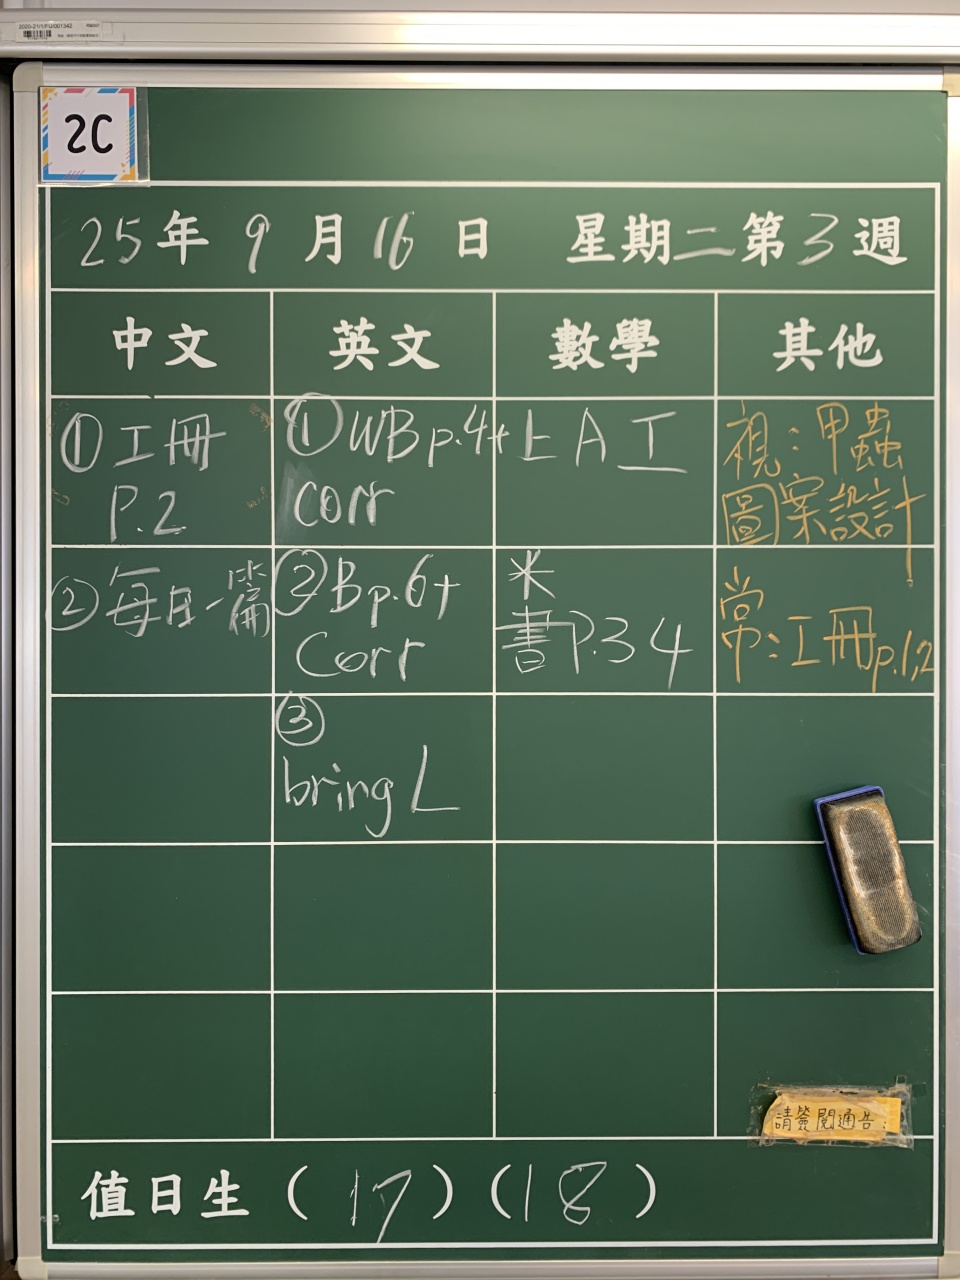 2020-21/1/FU/001342
2C
25年9月16日 星期二第3週
中文 英文 數學 其他
①工冊
P.2
①WBp.4+
corr
上A工
視:甲蟲
圖案設計
②每日一篇
②Bp.6+
Corr
米
書P.34
常:工冊p.1,2
③
bring L
請簽閱通告:
值日生(17)(18)